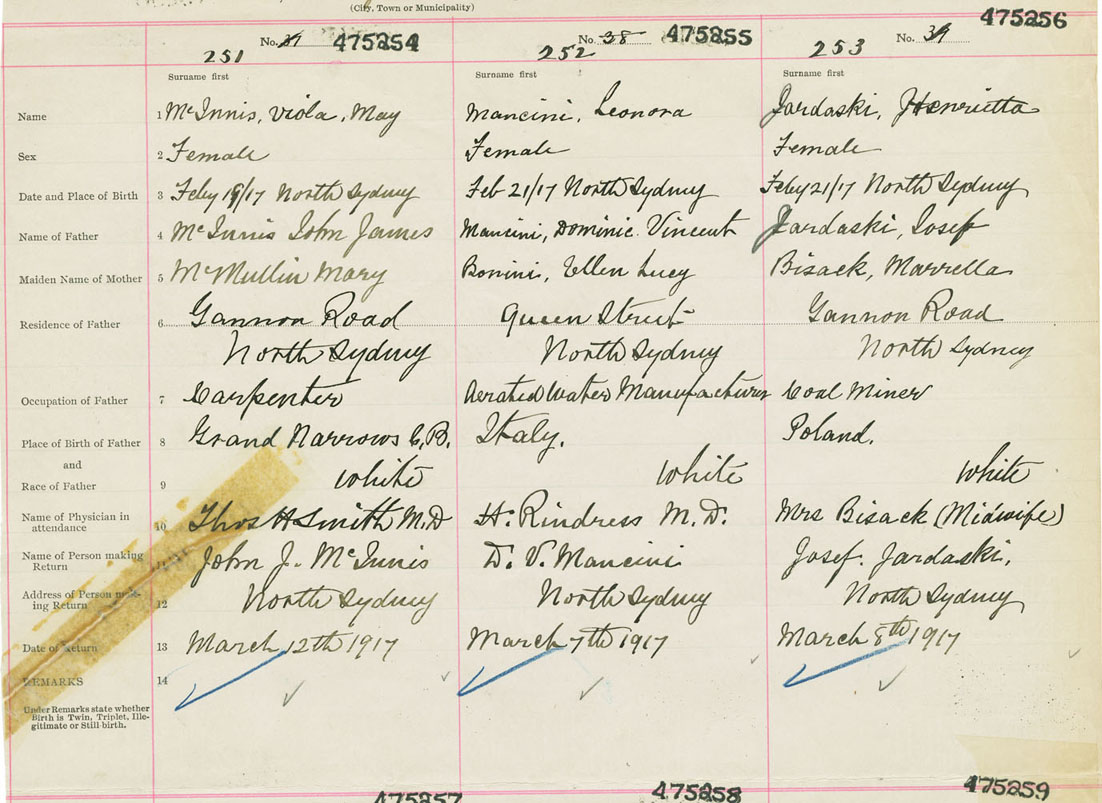 (City, Town or Municipality)
No. 37 475254 No. 38 475255 No. 39 475256
251 252 253
Surname first Surname first Surname first
Name 1 McInnis, Viola, May Mancini, Leonora Jardaski, Henrietta
Sex 2 Female Female Female
Date and Place of Birth 3 Feby 19/17 North Sydney Feb 21/17 North Sydney Feby 21/17 North Sydney
Name of Father 4 McInnis John James Mancini, Dominic Vincent Jardaski, Josef
Maiden Name of Mother 5 McMullin Mary Bonini, Ellen Lucy Bisack, Marrella
Residence of Father 6 Gannon Road Queen Street Gannon Road
North Sydney North Sydney North Sydney
Occupation of Father 7 Carpenter Aerated Water Manufacturer Coal Miner
Place of Birth of Father 8 Grand Narrows C.B. Italy. Poland.
and
Race of Father 9 White White White
Name of Physician in attendance 10 Thos H Smith M.D H. Rindress M.D. Mrs Bisack (Midwife)
Name of Person making Return 11 John J. McInnis D. V. Mancini Josef. Jardaski,
Address of Person making Return 12 North Sydney North Sydney North Sydney
Date of Return 13 March 12th 1917 March 7th 1917 March 8th 1917
REMARKS 14
Under Remarks state whether
Birth is Twin, Triplet, Ille-
gitimate or Still-birth.
475257 475258 475259